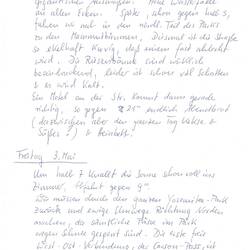 an allen Ecken. Später, schon gegen halb 5,
fahren wir noch in den südl. Teil des Parks
zu den Mammutbäumen. Diesmal ist die Straße
so ekelhaft kurvig, daß einem fast schlecht
wird. Die Riesenbäume sind wirklich
beeindruckend, leider ist schon viel Schatten
& es wird kalt.
Ein Motel an der Str. kommt dann gerade
richtig, so gegen 21⁰⁰ endlich Abendbrot
(dazwischen aber den ganzen Tag Kekse &
Süßes) & Heimbett!
Freitag 3. Mai
Um halb 7 knallt die Sonne schon voll ins
Zimmer, Abfahrt gegen 9⁰⁰.
Wir müssen durch den ganzen Yosemite-Park
zurück und ewige Umwege Richtung Norden
machen, da sämtliche Pässe im Park
wegen Schnee gesperrt sind. Die erste freie
West-Ost-Verbindung, der Carson-Pass, ist